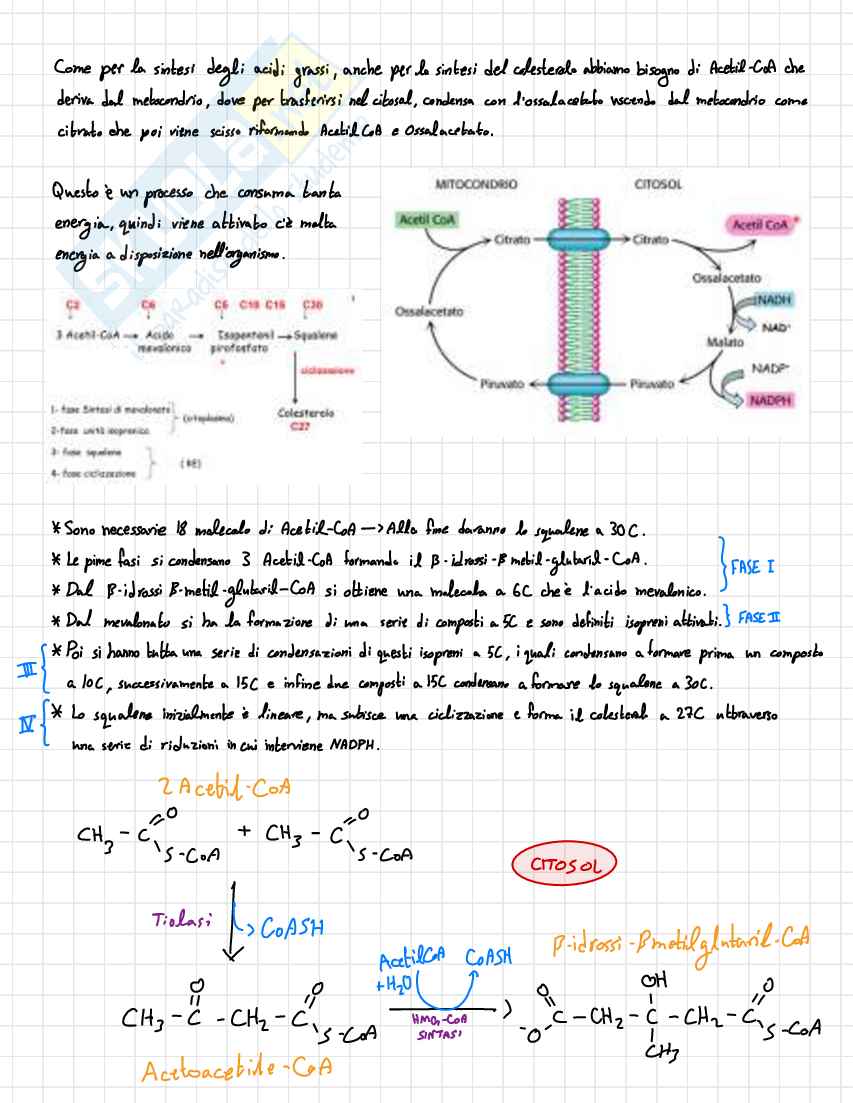 Come per la sintesi degli acidi grassi, anche per la sintesi del colesterolo abbiamo bisogno di Acetil-CoA che
deriva dal metocondrio, dove per trasferirsi nel citosol, condensa con l'ossalacetato uscendo dal metocondrio come
citrato che poi viene scisso riformando Acetil CoA e Ossalacetato.
Questo è un processo che consuma tanta
energia, quindi viene attivato c'è molta
energia a disposizione nell'organismo.
MITOCONDRIO CITOSOL
Acetil CoA Citrato Citrato Acetil CoA
Ossalacetato
NADH
NAD+
Ossalacetato
Malato
NADP+
Piruvato Piruvato
NADPH
C2 C6 C5 C10 C15 C30
3 Acetil-CoA → Acido mevalonico → Isopentenil pirofosfato → Squalene
ciclizzazione
Colesterolo
C27
1- fase Sintesi di mevalonato
2- fase unità isoprenica
(citoplasma)
3- fase squalene
4- fase ciclizzazione
(RE)
* Sono necessarie 18 molecole di Acetil-CoA → Alla fine daranno lo squalene a 30C.
* Le pime fasi si condensano 3 Acetil-CoA formando il β-idrossi-β metil-glutaril-CoA.
* Dal β-idrossi β-metil-glutaril-CoA si ottiene una molecola a 6C che è l'acido mevalonico.
FASE I
* Dal mevalonato si ha la formazione di una serie di composti a 5C e sono definiti isopreni attivati. } FASE II
III * Poi si hanno tutta una serie di condensazioni di questi isopreni a 5C, i quali condensano a formare prima un composto
a 10C, successivamente a 15C e infine due composti a 15C condensano a formare lo squalene a 30C.
IV * Lo squalene inizialmente è lineare, ma subisce una ciclizzazione e forma il colesterol a 27C attraverso
una serie di riduzioni in cui interviene NADPH.
2 Acetil-CoA
CH3 - C = O \ S-CoA + CH3 - C = O \ S-CoA
CITOSOL
Tiolasi CoASH
Acetil CoA CoASH
+H2O
HMG-CoA
SINTASI
β-idrossi-βmetilglutaril-CoA
CH3 - C = O - CH2 - C = O \ S-CoA
O = C -O - CH2 - C OH CH3 - CH2 - C = O \ S-CoA
Acetoacetile-CoA